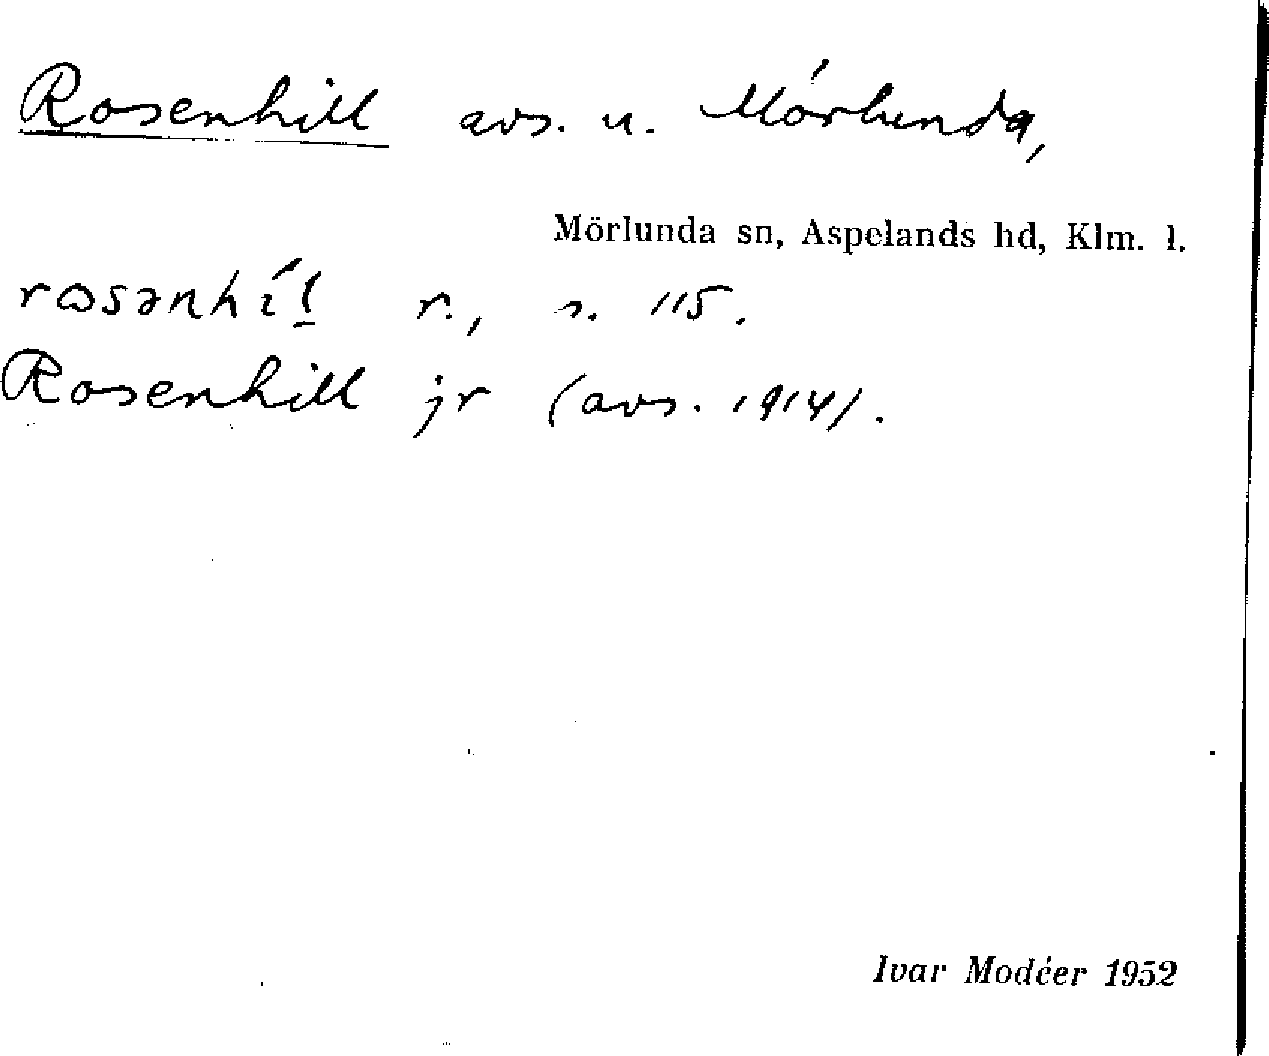 Rosenhill avs. u. Mörlunda,
Mörlunda sn, Aspelands hd, Klm. l.
rosənhíl r., s. 115.
Rosenhill jr (avs. 1914).
Ivar Modéer 1952